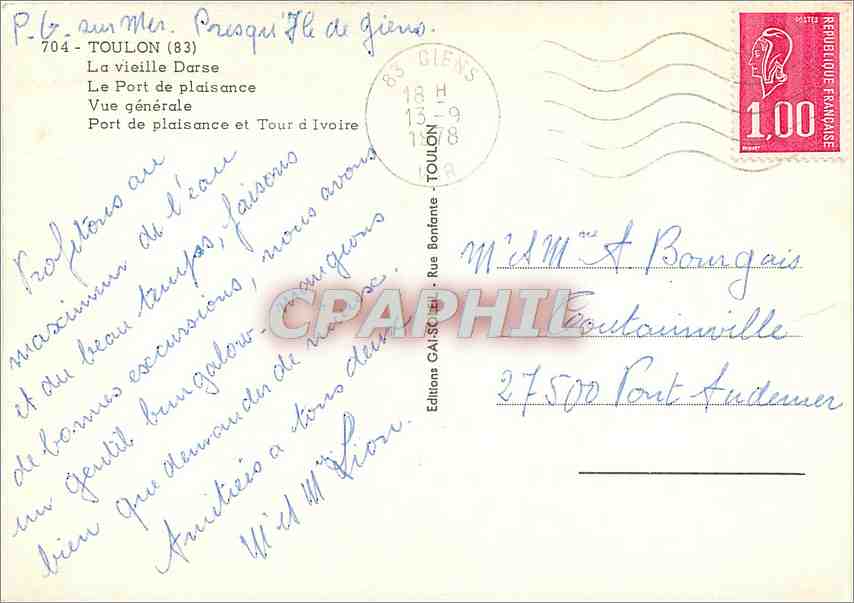 P.G. sur Mer. Presqu'Ile de Giens.
704 - TOULON (83)
La vieille Darse
Le Port de plaisance
Vue générale
Port de plaisance et Tour d Ivoire
83 GIENS
18 H
13-9
1978
POSTES
REPUBLIQUE FRANÇAISE
1,00
Profitons au
maximum de l'eau
et du beau temps, faisons
de bonnes excursions, nous avons
un gentil bungalow. mangeons
bien que demander de mieux.
Amitiés a tous deux
Mr et Mme Lion.
Editions GAI-SOLEIL - Rue Bonfante - TOULON
CPAPHIL
Mr & Mme A Bourgais
Toutainville
27500 Pont Audemer